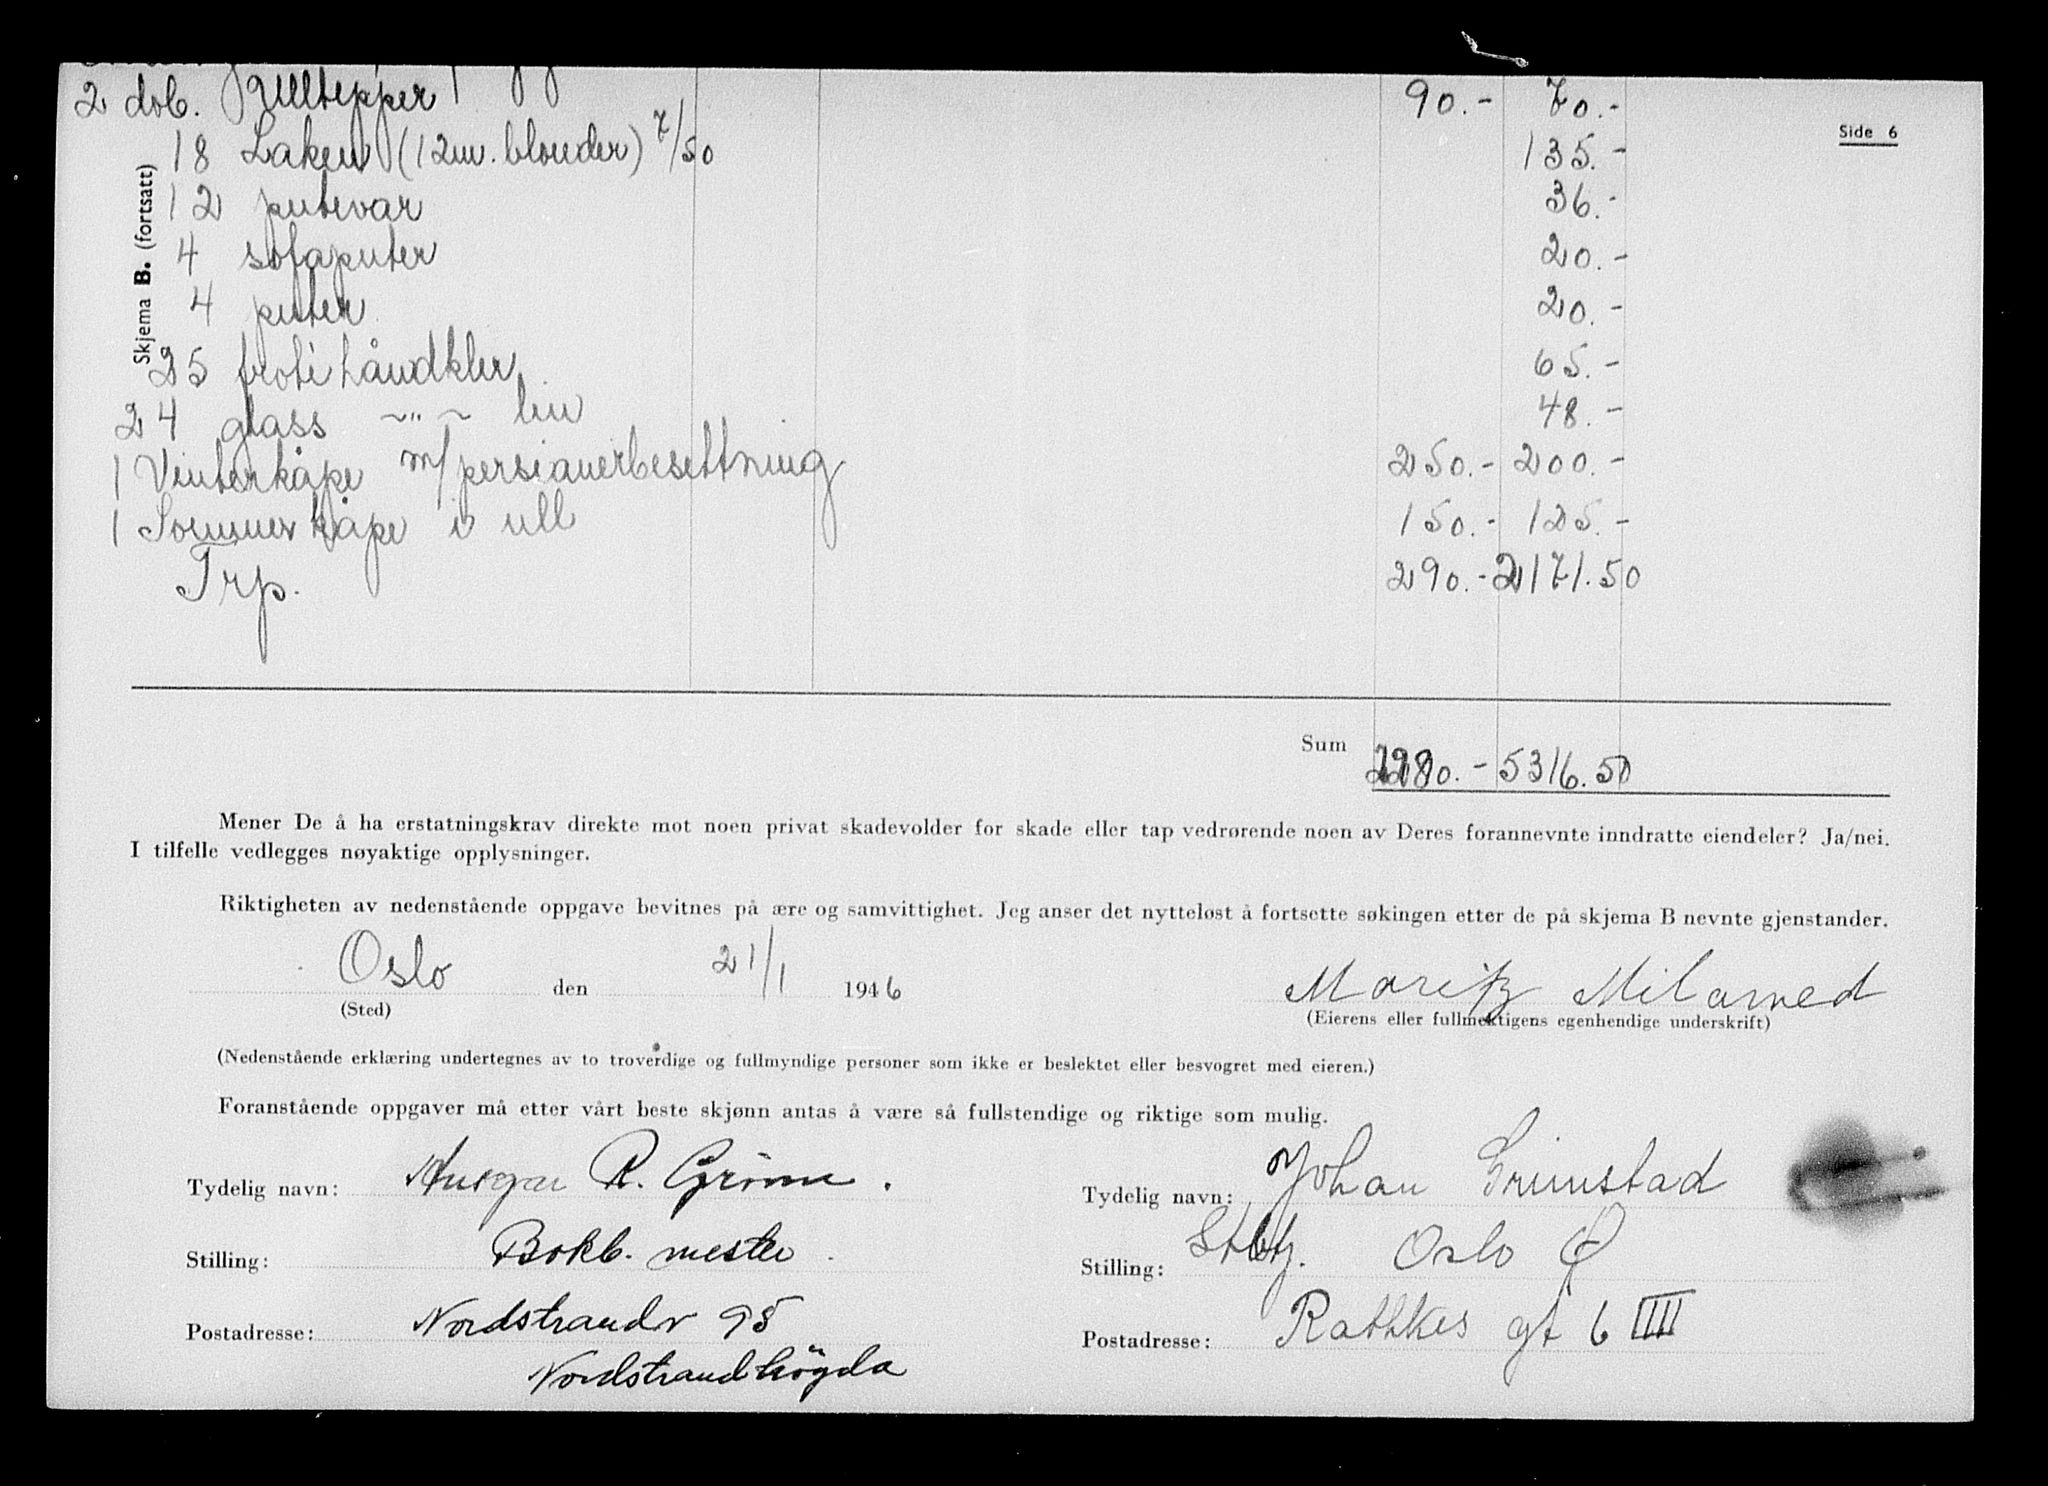 Side 6
Skjema B. (fortsatt)
2 dob. Ulltepper 90.- 70.-
18 Laken (12 m. blonder) 7/50 135.-
12 putevar 36.-
4 sofaputer 20.-
4 puter 20.-
25 froti håndklær 65.-
24 glass ~"~ lin 48.-
1 Vinterkåpe m/persianerbesettning 250.- 200.-
1 Sommerkåpe i ull 150.- 125.-
Trp. 290.- 2171.50
Sum 5316.50
Mener De å ha erstatningskrav direkte mot noen privat skadevolder for skade eller tap vedrørende noen av Deres forannevnte inndratte eiendeler? Ja/nei.
I tilfelle vedlegges nøyaktige opplysninger.
Riktigheten av nedenstående oppgave bevitnes på ære og samvittighet. Jeg anser det nytteløst å fortsette søkingen etter de på skjema B nevnte gjenstander.
Oslo den 21/1 1946 Moritz Milarned
(Sted) (Eierens eller fullmektigens egenhendige underskrift)
(Nedenstående erklæring undertegnes av to troverdige og fullmyndige personer som ikke er beslektet eller besvogret med eieren.)
Foranstående oppgaver må etter vårt beste skjønn antas å være så fullstendige og riktige som mulig.
Tydelig navn: Ansgar R. Grimm. Tydelig navn: Johan Grimstad
Stilling: Bokb. mester Stilling: Oslo Ø
Postadresse: Nordstrandv 95 Postadresse: Rathkes gt 6 IIII
Nordstrandhögda